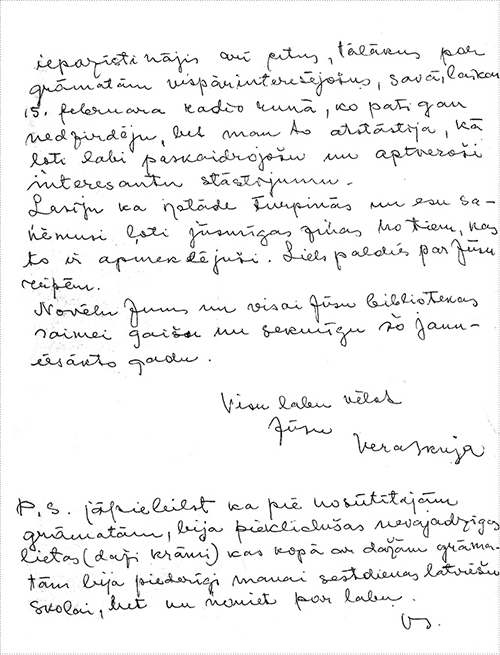 iepazīstinājis arī citus, tālākus par
grāmatām vispārinteresējošus, savā, laikam
15. februara radio runā, ko pati gan
nedzirdēju, bet man to atstāstīja, kā
ļoti labi paskaidrojošu un aptveroši
interesantu stāstījumu.
Lasīju ka izstāde turpinās un esu sa-
ņēmusi ļoti jūsmīgas ziņas no tiem, kas
to ir apmeklējuši. Liels paldies par Jūsu
rūpēm.
Novēlu Jums un visai Jūsu bibliotekas
saimei gaišu un sekmīgu šo jaun-
iesākto gadu.
Visu labu vēlot
Jūsu
Vera Skuja
P.S. jāpieliekst ka pie nosūtītajām
grāmatām, bija pieklīdušas nevajadzīgas
lietas (daži krāmi) kas kopā ar dažām grāma-
tām bija piederīgi manai sestdienas latviešu
skolai, bet un noniet par labu.
VS.